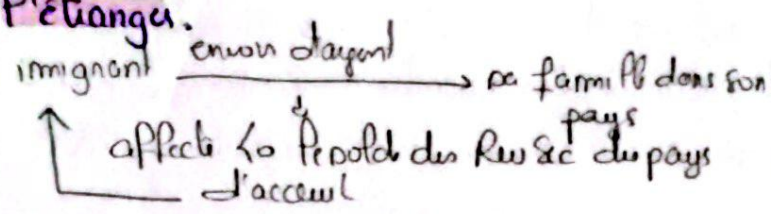 l'étranger.
immigrant envoi d'argent sa famille dans son pays
affecte le solde des Rev sec du pays
d'acceuil